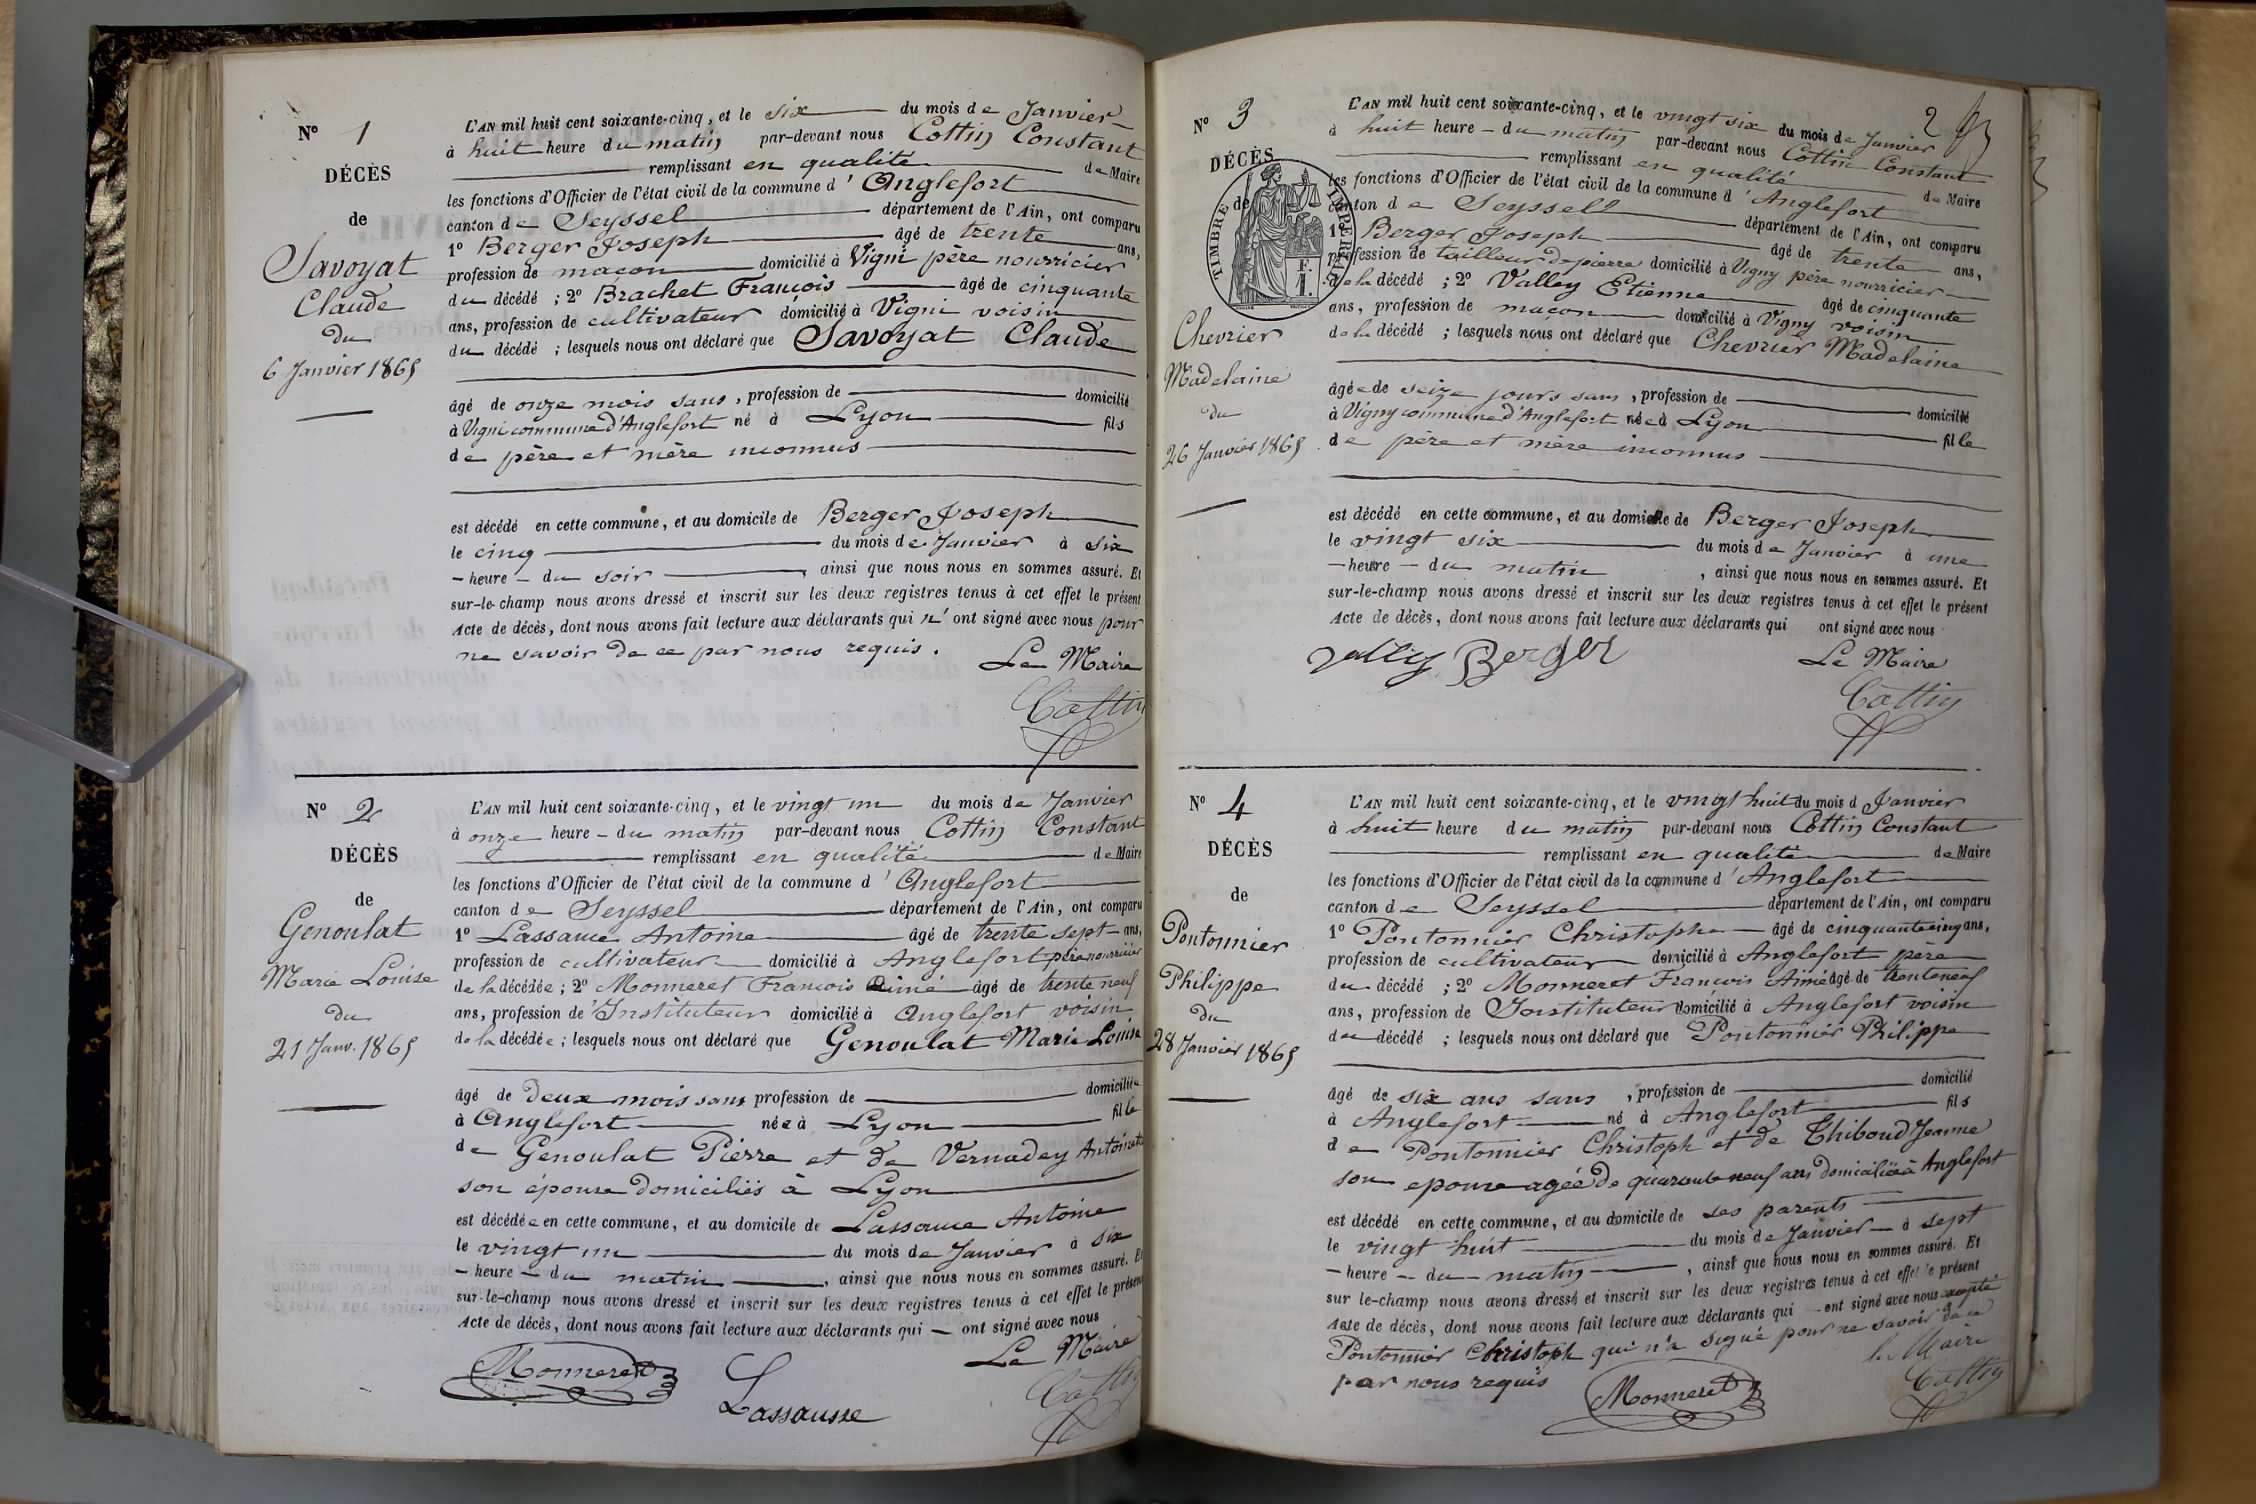 N° 1
DÉCÈS
de
Savoyat
Claude
du
6 Janvier 1865
L'AN mil huit cent soixante-cinq, et le six du mois de Janvier
à huit heure du matin par-devant nous Cottin Constant
remplissant en qualité de Maire
les fonctions d'Officier de l'état civil de la commune d'Anglefort
canton de Seyssel département de l'Ain, ont comparu
1° Berger Joseph âgé de trente ans,
profession de maçon domicilié à Vigni père nourricier
du décédé ; 2° Brachet François âgé de cinquante
ans, profession de cultivateur domicilié à Vigni voisin
du décédé ; lesquels nous ont déclaré que Savoyat Claude
âgé de onze mois sans, profession de domicilié
à Vigni commune d'Anglefort né à Lyon fils
de père et mère inconnus
est décédé en cette commune, et au domicile de Berger Joseph
le cinq du mois de Janvier à six
heure du soir, ainsi que nous nous en sommes assuré. Et
sur-le-champ nous avons dressé et inscrit sur les deux registres tenus à cet effet le présent
Acte de décès, dont nous avons fait lecture aux déclarants qui n'ont signé avec nous pour
ne savoir de ce par nous requis.
Le Maire
Cottin
N° 2
DÉCÈS
de
Genoulat
Marie Louise
du
21 Janv. 1865
L'AN mil huit cent soixante-cinq, et le vingt un du mois de Janvier
à onze heure du matin par-devant nous Cottin Constant
remplissant en qualité de Maire
les fonctions d'Officier de l'état civil de la commune d'Anglefort
canton de Seyssel département de l'Ain, ont comparu
1° Lassauce Antoine âgé de trente sept ans,
profession de cultivateur domicilié à Anglefort père nourricier
de la décédée ; 2° Monneret François Aimé âgé de trente neuf
ans, profession d'Instituteur domicilié à Anglefort voisin
de la décédée ; lesquels nous ont déclaré que Genoulat Marie Louise
âgé de deux mois sans profession de domiciliée
à Anglefort née à Lyon fille
de Genoulat Pierre et de Vernadey
son épouse domiciliés à Lyon
est décédée en cette commune, et au domicile de Lassauce Antoine
le vingt un du mois de Janvier à six
heure du matin, ainsi que nous nous en sommes assuré. Et
sur-le-champ nous avons dressé et inscrit sur les deux registres tenus à cet effet le présent
Acte de décès, dont nous avons fait lecture aux déclarants qui ont signé avec nous
Le Maire
Monneret Lassausse Cottin
2
N° 3
DÉCÈS
de
TIMBRE IMPERIAL
F.
1.
Chevrier
Madelaine
du
26 Janvier 1865
L'AN mil huit cent soixante-cinq, et le vingt six du mois de Janvier
à huit heure du matin par-devant nous Cottin Constant
remplissant en qualité de Maire
les fonctions d'Officier de l'état civil de la commune d'Anglefort
canton de Seyssell département de l'Ain, ont comparu
1° Berger Joseph âgé de trente ans,
profession de tailleur de pierre domicilié à Vigny père nourricier
de la décédé ; 2° Valley Etienne âgé de cinquante
ans, profession de maçon domicilié à Vigny voisin
de la décédé ; lesquels nous ont déclaré que Chevrier Madelaine
âgée de seize jours sans, profession de domicilié
à Vigny commune d'Anglefort née à Lyon fille
de père et mère inconnus
est décédé en cette commune, et au domicile de Berger Joseph
le vingt six du mois de Janvier à une
heure du matin, ainsi que nous nous en sommes assuré. Et
sur-le-champ nous avons dressé et inscrit sur les deux registres tenus à cet effet le présent
Acte de décès, dont nous avons fait lecture aux déclarants qui ont signé avec nous
Valley Berger Le Maire
Cottin
N° 4
DÉCÈS
de
Pontonnier
Philippe
du
28 Janvier 1865
L'AN mil huit cent soixante-cinq, et le vingt huit du mois d Janvier
à huit heure du matin par-devant nous Cottin Constant
remplissant en qualité de Maire
les fonctions d'Officier de l'état civil de la commune d'Anglefort
canton de Seyssel département de l'Ain, ont comparu
1° Pontonnier Christophe âgé de cinquante cinq ans,
profession de cultivateur domicilié à Anglefort père
du décédé ; 2° Monneret François Aimé âgé de trente neuf
ans, profession de Instituteur domicilié à Anglefort voisin
du décédé ; lesquels nous ont déclaré que Pontonnier Philippe
âgé de six ans sans, profession de domicilié
à Anglefort né à Anglefort fils
de Pontonnier Christoph et de Thiboud Jeanne
son epouse agée de quarante neuf ans domiciliée à Anglefort
est décédé en cette commune, et au domicile de ses parents
le vingt huit du mois de Janvier à sept
heure du matin, ainsi que nous nous en sommes assuré. Et
sur le-champ nous avons dressé et inscrit sur les deux registres tenus à cet effet le présent
Acte de décès, dont nous avons fait lecture aux déclarants qui ont signé avec nous excepté
Pontonnier Christoph qui n'a signé pour ne savoir de ce
par nous requis
le Maire
Monneret Cottin